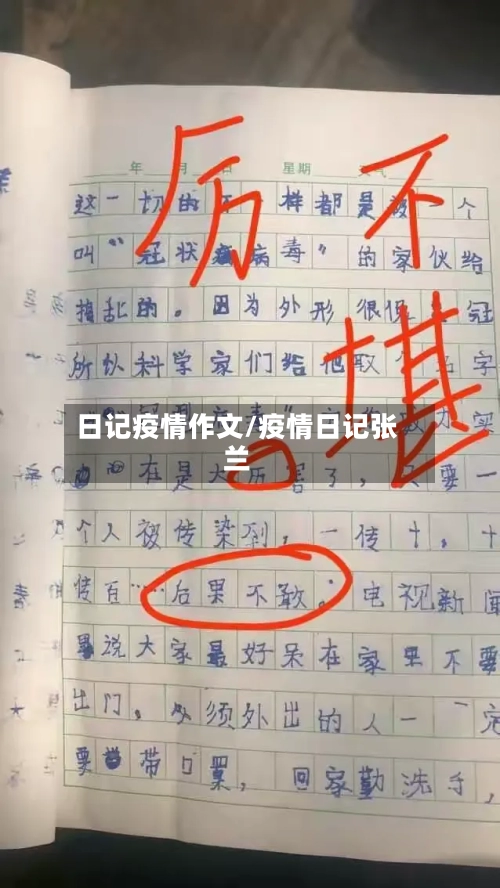 年 月 日 星期 天气
厉不
堪
这一切的不一样都是被一个
叫“冠状病毒”的家伙给
捣乱的。因为外形很像 冠
所以科学家们给他取个名字
日记疫情作文/疫情日记张
兰
在是大历害了，只要一
个人被传染到，一传十，十
传百……后果不敢。电视新闻
说大家最好呆在家里不要
出门，必须外出的人一定
要带口罩，回家勤洗手，